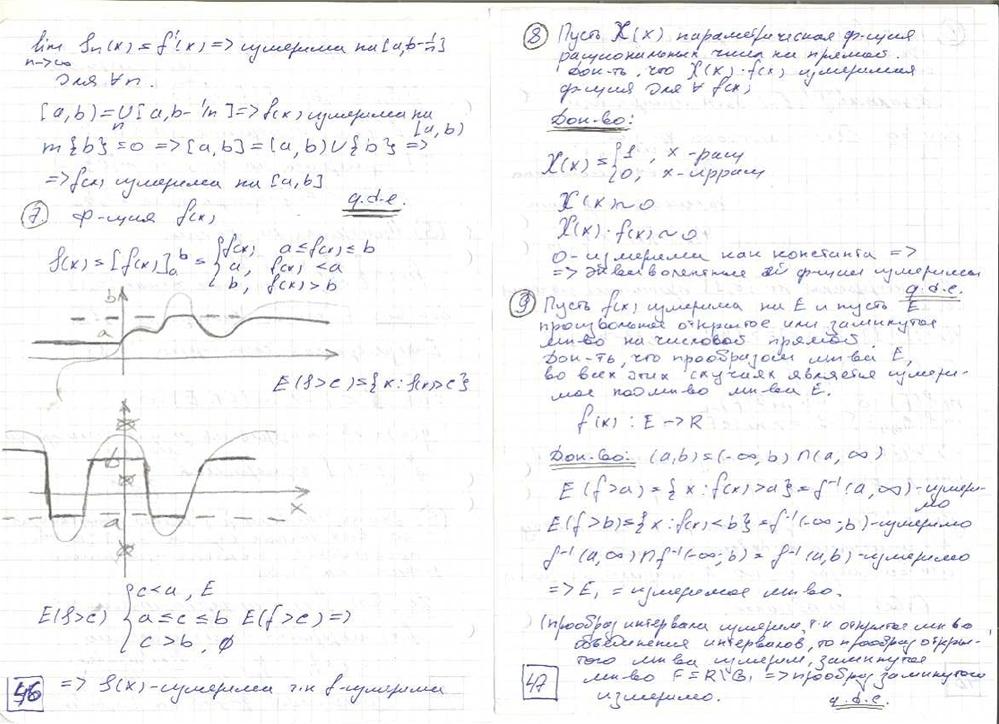 lim fn(x) = f'(x) => измерима на [a,b-1/n]
n->∞
для ∀n.
[a,b) = ∪[a,b-1/n] => f(x) измерима на
n
[a,b)
m{b} = 0 => [a,b] = [a,b) ∪ {b} =>
=> f(x) измерима на [a,b]
q.d.e.
7 ф-ция f(x)
f(x) = [f(x)]ₐᵇ = { f(x), a≤f(x)≤b
a, f(x)<a
b, f(x)>b
b
a
E(f>c) = {x: f(x)>c}
b
x
a
c<a, E
E(f>c) { a≤c≤b E(f>c) =>
c>b, ∅
46 => f(x)-измерима т.к f-измерима
8 Пусть X(x) ф-ция
рациональных чисел на прямой.
Док-ть, что X(x)·f(x) измеримая
ф-ция для ∀ f(x)
Док-во:
X(x) = { 1, x-рац
0, x-иррац
X(x) ~ 0
X(x)·f(x) ~ 0
0-измерима как константа =>
=> ей ф-ции измеримы
q.d.e.
9 Пусть f(x) измерима на E и пусть E
произвольное открытое или замкнутое
мн-во на числовой прямой.
Док-ть, что прообразом мн-ва E,
во всех этих случаях является измери-
мое подмн-во мн-ва E.
f(x): E -> R
Док-во: (a,b) = (-∞,b) ∩ (a,∞)
E(f>a) = {x: f(x)>a} = f⁻¹(a,∞)-измери-
мо
E(f>b) = {x: f(x)<b} = f⁻¹(-∞;b)-измеримо
f⁻¹(a,∞) ∩ f⁻¹(-∞;b) = f⁻¹(a,b)-измеримо
=> E₁ = измеримое мн-во.
(прообраз интервала измерим, т.к открытое мн-во
объединения интервалов, то прообраз откры-
того мн-ва измерим, замкнутое
мн-во F = R\ => прообраз замкнутого
47 измеримо.
q.d.e.